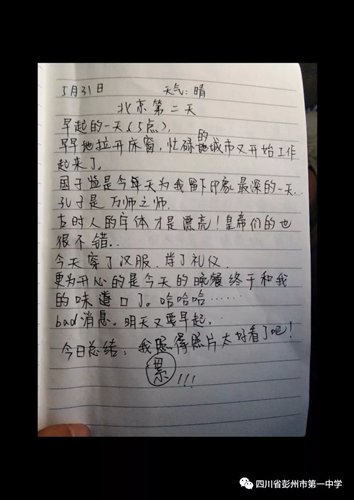 5月31日 天气:晴
北京第二天
早起的一天(5点),
早早地拉开床窗,忙碌的城市又开始工作
起来了。
国子监是今年天为我留下印象最深的一天。
孔子是万师之师。
古时人的字体才是漂亮!皇帝们的也
很不错。
今天穿了汉服,学了礼仪。
更为开心的是今天的晚餐终于和我
的味道口了。哈哈哈……
bad消息。明天又要早起。
今日总结:我照得照片太好看了吧!
累!!!
四川省彭州市第一中学